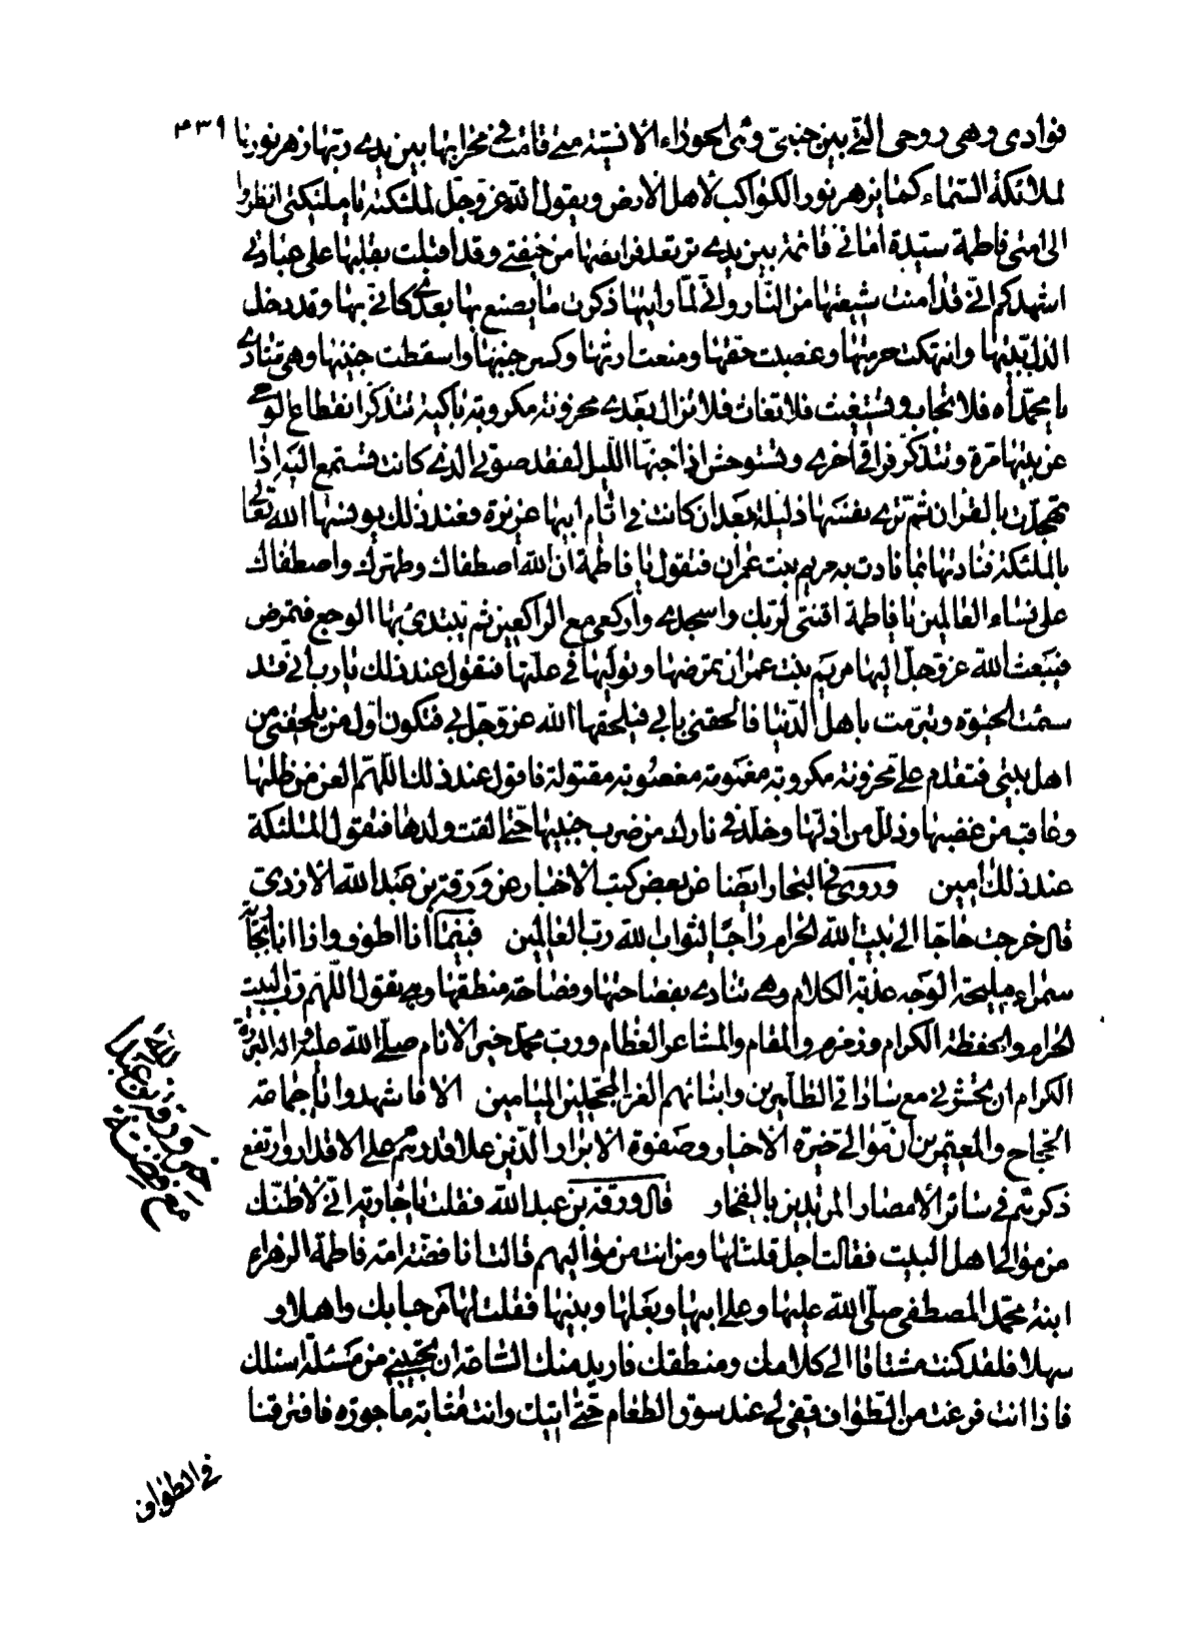 ٤٣٩
فؤادى وهى روحى التى بين جنبى وهى الحوراء الانسية متى قامت فى محرابها بين يدى ربها زهر نورها
لملائكة السماء كما يزهر نور الكواكب لاهل الارض ويقول الله عز وجل لملئكته يا ملئكتى انظروا
الى امتى فاطمة سيدة امائى قائمة بين يدى ترتعد فرايصها من خيفتى وقد اقبلت بقلبها على عبادتى
اشهدكم انى قد امنت شيعتها من النار وانى لما رايتها ذكرت ما يصنع بها بعدى كانى بها وقد دخل
الذل بيتها وانتهكت حرمتها وغصبت حقها ومنعت ارثها وكسر جنبها واسقطت جنينها وهى تنادى
يا محمداه فلا تجاب وتستغيث فلا تغاث فلا تزال بعدى محزونة مكروبة باكية تتذكر انقطاع الوحى
عن بيتها مرة وتتذكر فراقى اخرى وتستوحش اذا جنها الليل لفقد صوتى الذى كانت تستمع اليه اذا
تهجدت بالقران ثم ترى نفسها ذليلة بعد ان كانت فى ايام ابيها عزيزة فعند ذلك يونسها الله تعالى
بالملئكة فنادتها بما نادت به مريم بنت عمران فتقول يا فاطمة ان الله اصطفاك وطهرك واصطفاك
على نساء العالمين يا فاطمة اقنتى لربك واسجدى واركعى مع الراكعين ثم يبتدئ بها الوجع فتمرض
فيبعث الله عز وجل اليها مريم بنت عمران تمرضها وتونسها فى علتها فتقول عند ذلك يا رب انى قد
سئمت الحيوة وتبرمت باهل الدنيا فالحقنى بابى فيلحقها الله عز وجل بى فتكون اول من يلحقنى من
اهل بيتى فتقدم على محزونة مكروبة مغمومة مغصوبة مقتولة فاقول عند ذلك اللهم العن من ظلمها
وعاقب من غصبها وذلل من اذلها وخلد فى نارك من ضرب جنبيها حتى القت ولدها فتقول الملئكة
عند ذلك امين وروى فى البحار ايضا عن بعض كتب الاخبار عن ورقة بن عبد الله الازدى
قال خرجت حاجا الى بيت الله الحرام راجيا لثواب الله رب العالمين فبينما انا اطوف واذا انا بجارية
سمراء مليحة الوجه عذبة الكلام وهى تنادى بفصاحتها وفصاحة منطقها وهى تقول اللهم رب البيت
الحرام والحفظة الكرام وزمزم والمقام والمشاعر العظام ورب محمد خير الانام صلى الله عليه واله البررة
الكرام ان تحشرنى مع ساداتى الطاهرين وابنائهم الغر المحجلين الميامين الا فاشهدوا يا جماعة
الحجاج والمعتمرين ان موالى خيرة الاخيار وصفوة الابرار والذين علا قدرهم على الاقدار وارتفع
ذكرهم فى سائر الامصار المرتدين بالفخار قال ورقة بن عبد الله فقلت يا جارية انى لاظنك
من موالى اهل البيت فقالت اجل قلت لها ومن انت من مواليهم قالت انا فضة امة فاطمة الزهراء
ابنة محمد المصطفى صلى الله عليها وعلى ابيها وبعلها وبنيها فقلت لها مرحبا بك واهلا و
سهلا فلقد كنت مشتاقا الى كلامك ومنطقك فاريد منك الساعة ان تجيبينى من مسئلة اسئلك
فاذا انت فرغت من الطواف قفى لى عند سوق الطعام حتى اتيك وانت مثابة ماجورة فافترقنا
فى الطواف
خبر ورقة بن عبد الله
مع فضة